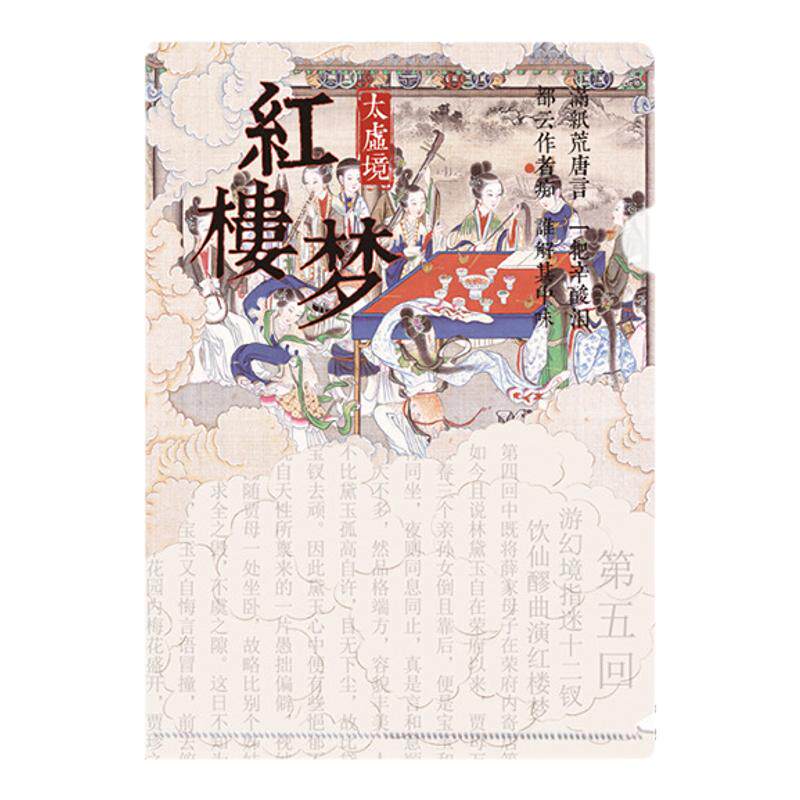 紅樓梦
太虛境
滿紙荒唐言 一把辛酸泪
都云作者痴 誰解其中味
第五回
游幻境指迷十二钗
饮仙醪曲演红楼梦
第四回中既将薛家母子在荣府内寄居
如今且说林黛玉自在荣府以来，贾母
三个亲孙女倒且靠后，便是宝玉和
同坐，夜则同息同止，真是言和意顺
不多，然品格端方，容貌丰美
不比黛玉孤高自许，目无下尘，故比黛
宝钗去顽。因此黛玉心中便有些悒郁不
自天性所禀来的一片愚拙偏僻，视姊
随贾母一处坐卧，故略比别个姊妹
求全之毁，不虞之隙。这日不知为
宝玉又自悔言语冒撞，前去俯
花园内梅花盛开，贾珍之